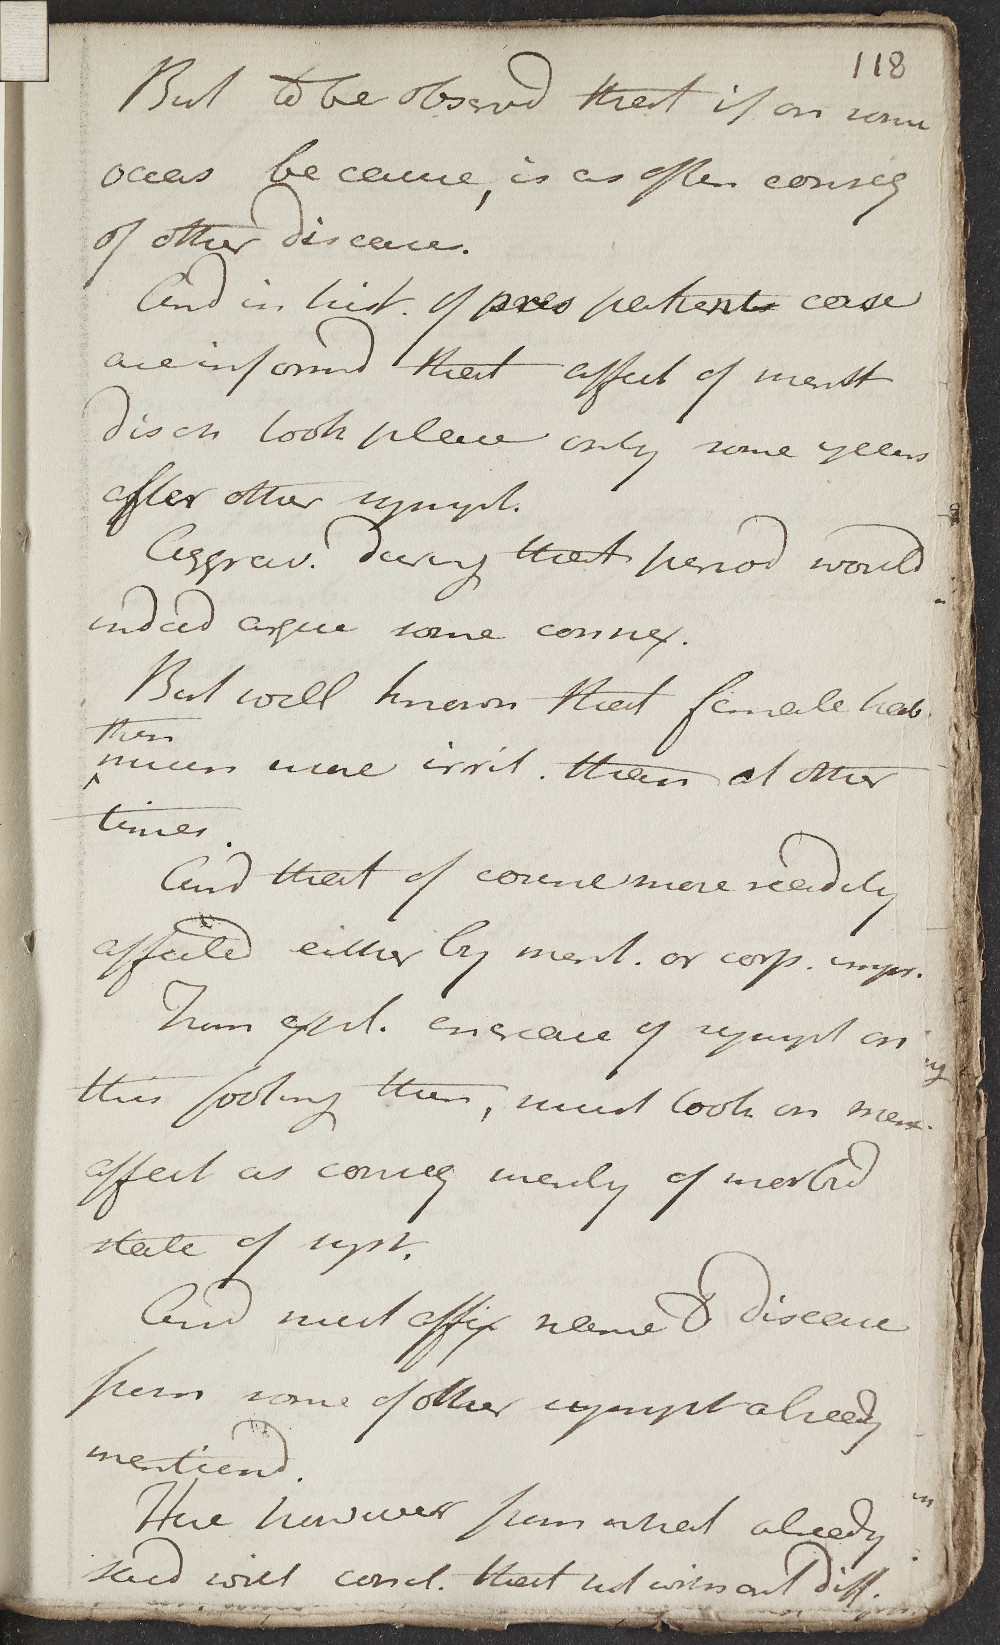 118
But to be observd that if on some
occas be cause, is as often conseq
of other disease.
And in hist. of pres patients case
are informd that affect of menst
disch took place only some years
after other sympt.
Aggrav. during that period would
indeed argue some connex.
But well known that female hab.
then
much more irrit. than at other
times.
And that of course more readily
affected either by ment. or corp. impr.
From expl. increase of sympt on
this footing then, must look on men.
affect as conseq merely of morbid
state of syst.
And must affix name to disease
from some of other sympt already
mentiond.
Here however from what already
said will concl. that not without diff.